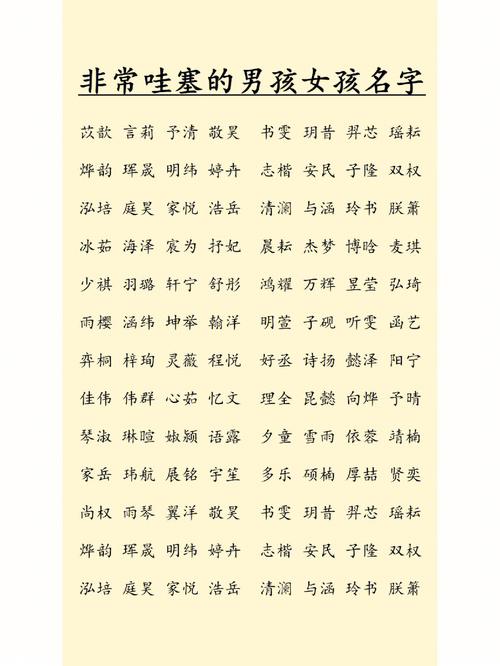 非常哇塞的男孩女孩名字
苡歆 言莉 予清 敬昊 书雯 玥昔 羿芯 瑶耘
烨韵 珲晟 明纬 婷卉 志楷 安民 子隆 双权
泓培 庭昊 家悦 浩岳 清澜 与涵 玲书 朕萧
冰茹 海泽 宸为 抒妃 晨耘 杰梦 博晗 麦琪
少祺 羽璐 轩宁 舒彤 鸿耀 万辉 昱莹 弘琦
雨樱 涵纬 坤举 翰洋 明萱 子砚 听雯 函艺
弈桐 梓珣 灵薇 程悦 好丞 诗扬 懿泽 阳宁
佳伟 伟群 心茹 忆文 理全 昆懿 向烨 予晴
琴淑 琳喧 婌颍 语露 夕童 雪雨 依蓉 靖楠
家岳 玮航 展铭 宇笙 多乐 硕楠 厚喆 贤奕
尚权 雨琴 翼洋 敬昊 书雯 玥昔 羿芯 瑶耘
烨韵 珲晟 明纬 婷卉 志楷 安民 子隆 双权
泓培 庭昊 家悦 浩岳 清澜 与涵 玲书 朕萧